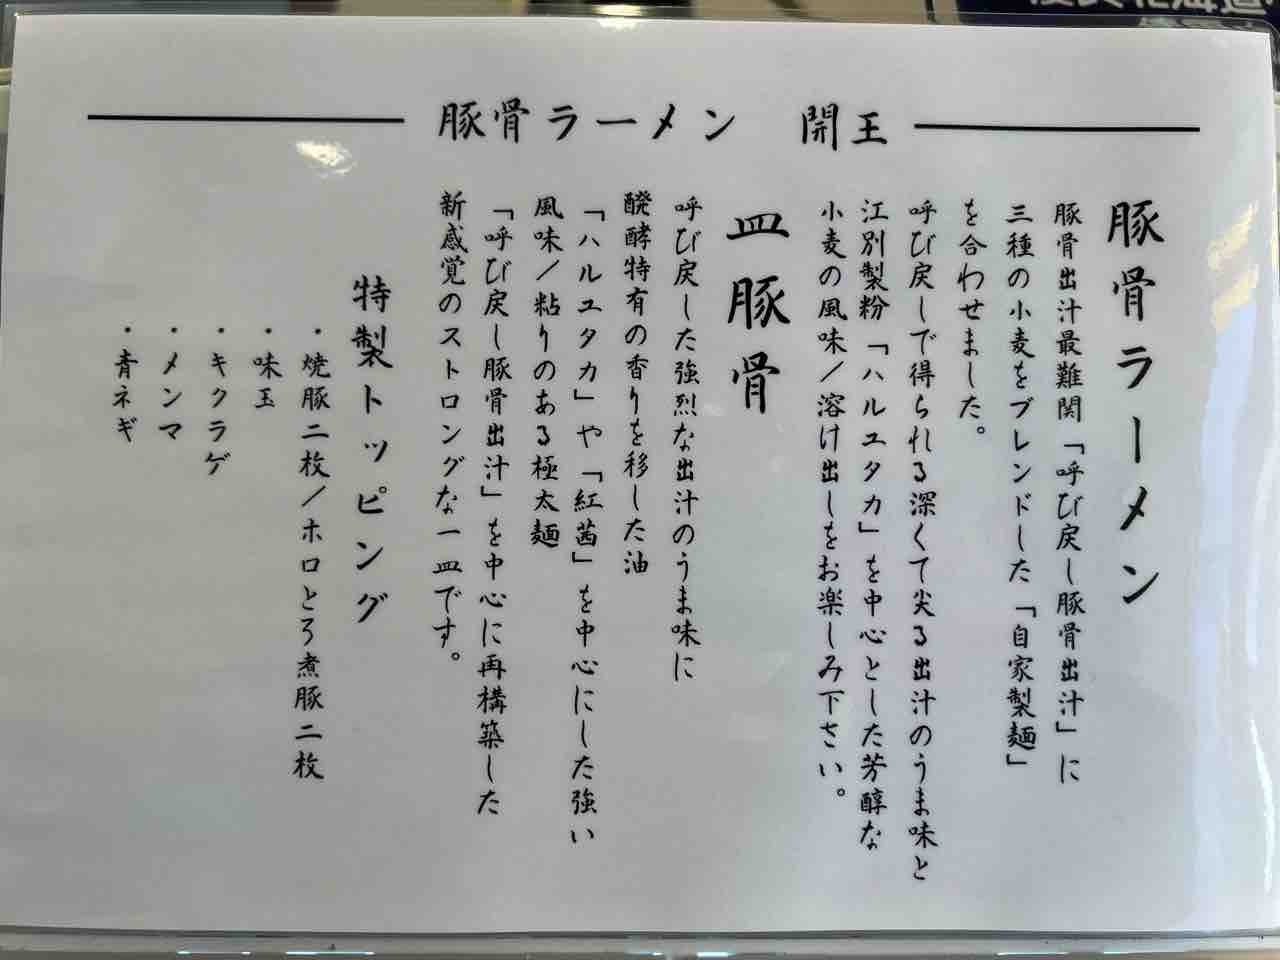 豚骨ラーメン　開王
豚骨ラーメン
豚骨出汁最難関「呼び戻し豚骨出汁」に
三種の小麦をブレンドした「自家製麺」
を合わせました。
呼び戻しで得られる深くて尖る出汁のうま味と
江別製粉「ハルユタカ」を中心とした芳醇な
小麦の風味／溶け出しをお楽しみ下さい。
皿豚骨
呼び戻した強烈な出汁のうま味に
醗酵特有の香りを移した油
「ハルユタカ」や「紅茜」を中心にした強い
風味／粘りのある極太麺
「呼び戻し豚骨出汁」を中心に再構築した
新感覚のストロングな一皿です。
特製トッピング
・焼豚二枚／ホロとろ煮豚二枚
・味玉
・キクラゲ
・メンマ
・青ネギ